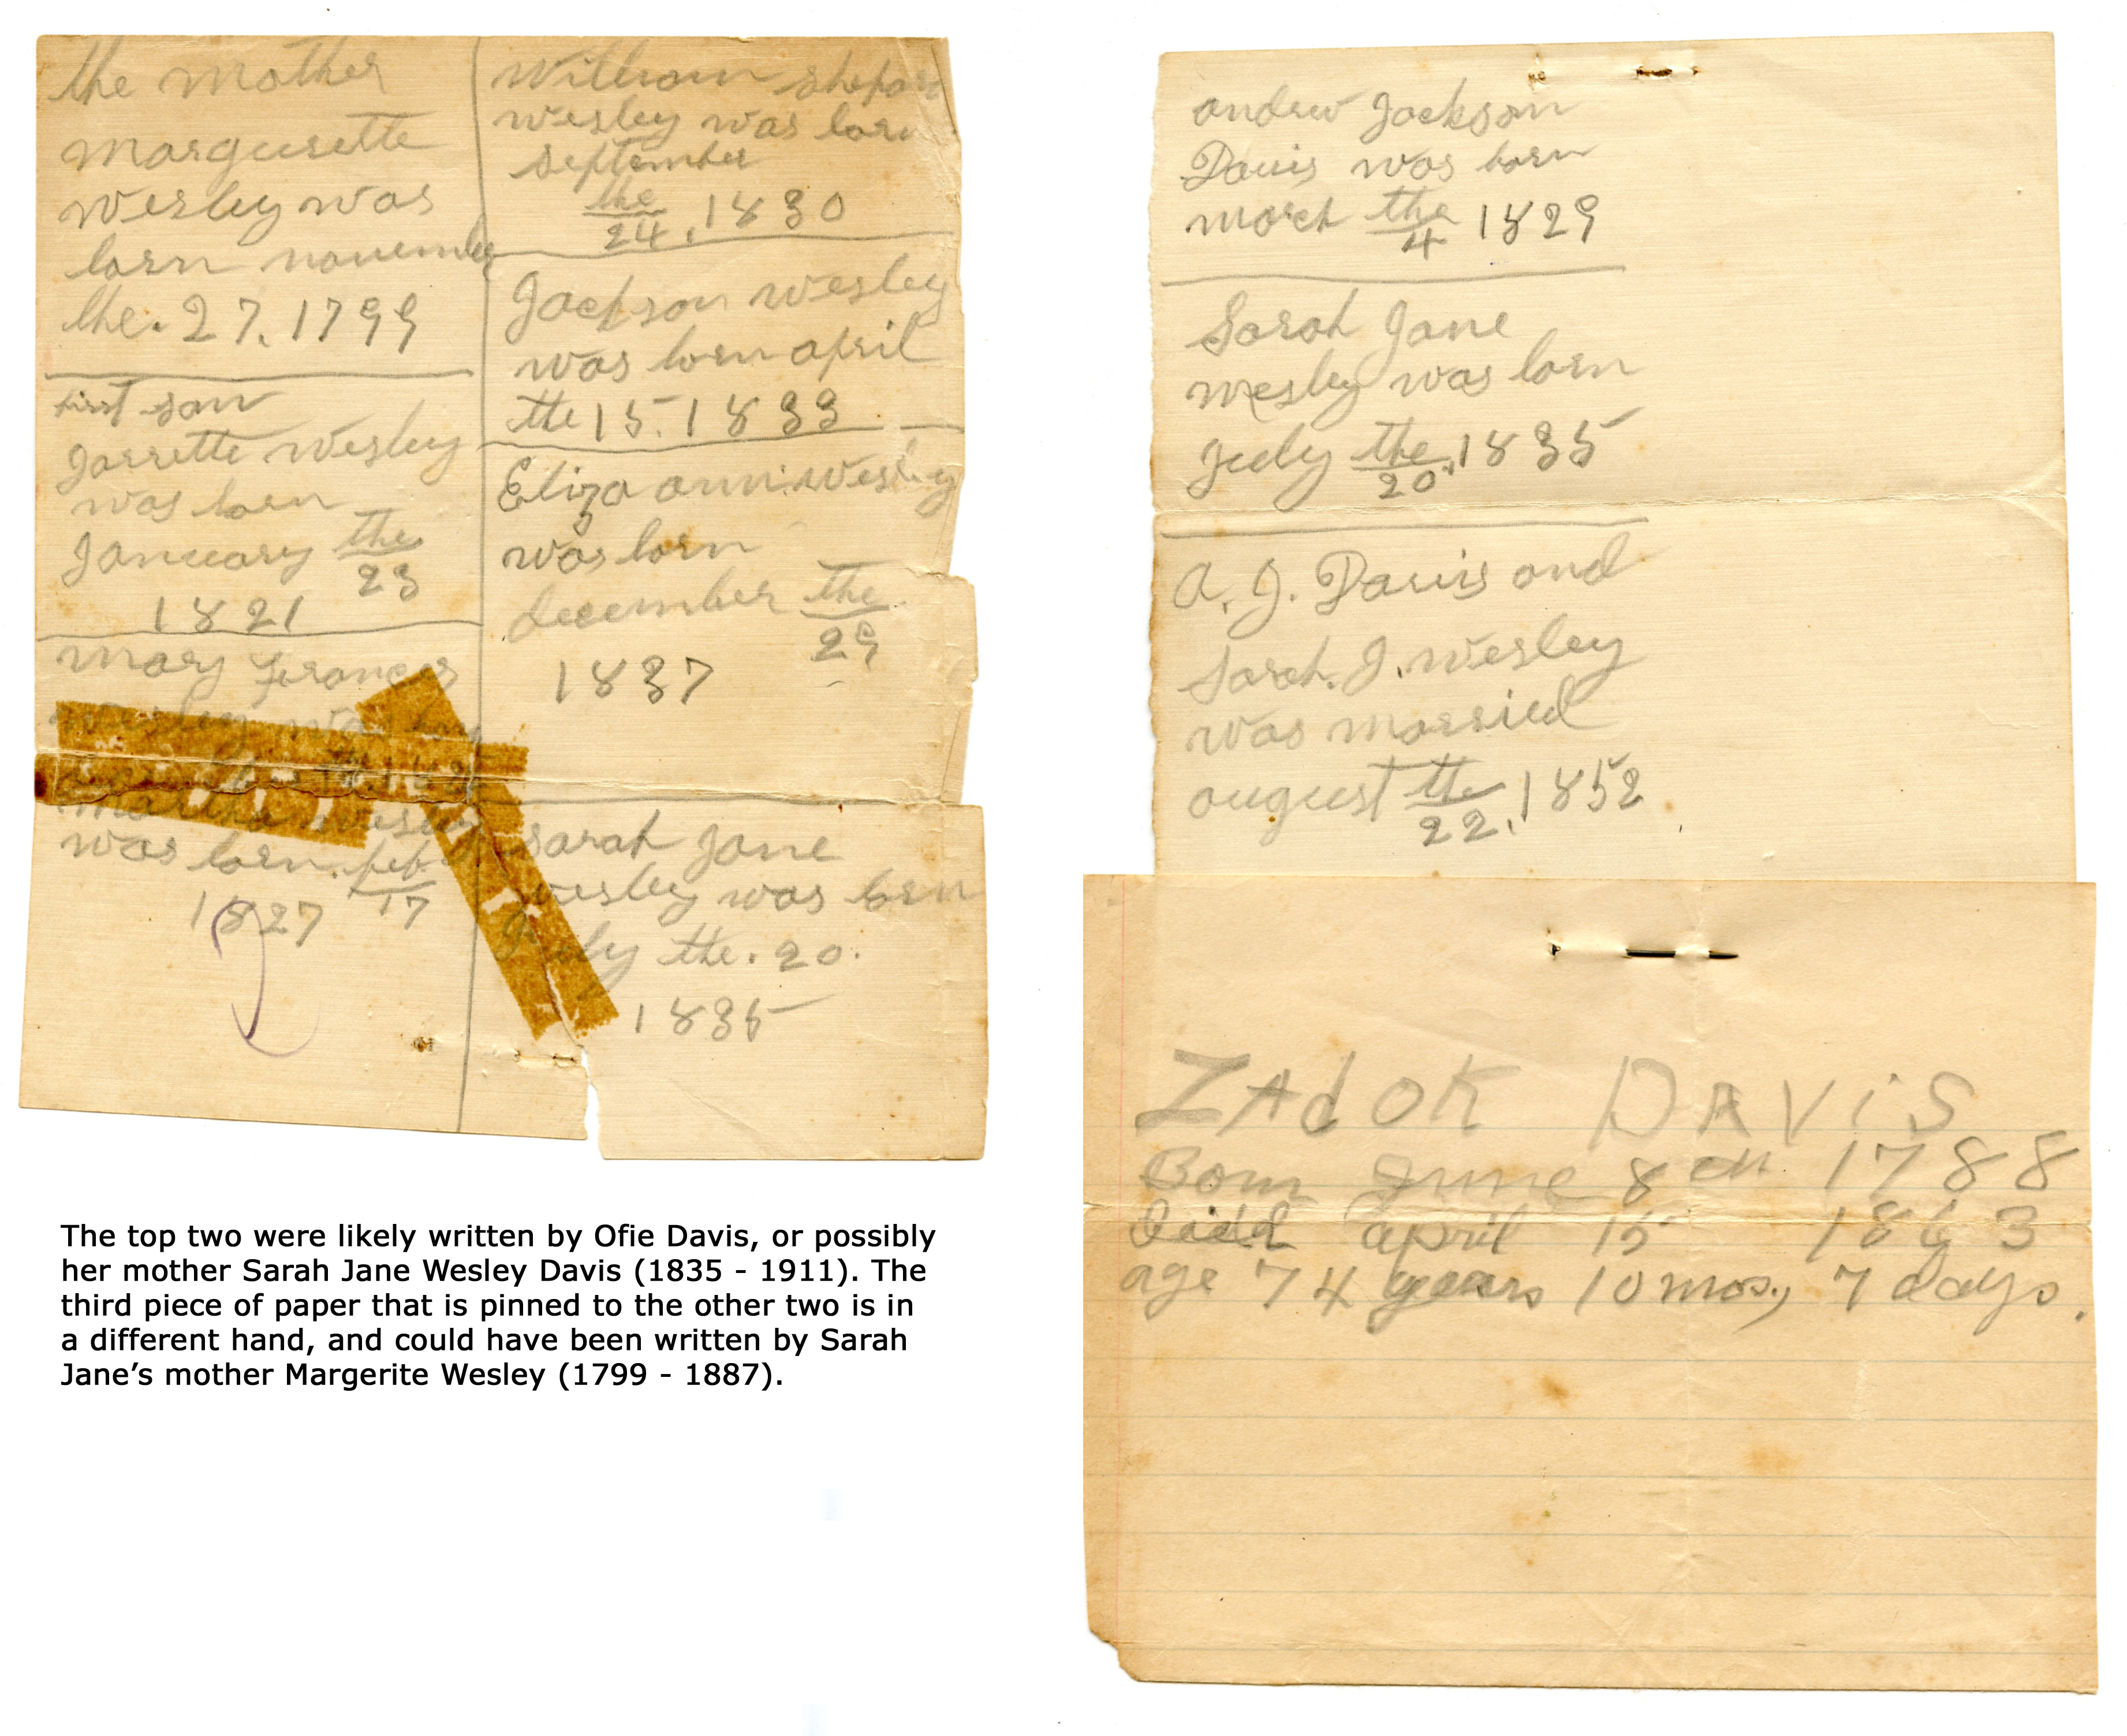 the mother
Margurette
Wesley was
born november
the. 27. 1799
first son
Jarrette Wesley
was born
January the
23
1821
Mary Frances
Wesley was
Martha Wesley
was born. feb.
17
1827
William shepard
Wesley was born
September
the
24. 1830
Jackson Wesley
was born april
the 15. 1833
Eliza ann Wesley
was born
december the
29
1837
Sarah Jane
Wesley was born
July the. 20.
1835
andrew Jackson
Davis was born
march the
4 1829
Sarah Jane
Wesley was born
July the
20. 1835
A. J. Davis and
Sarah. J. Wesley
was married
august the
22. 1852
ZAdOK DAViS
Born June 8th 1788
Died april 15 1863
age 74 years 10 mos, 7 days.
The top two were likely written by Ofie Davis, or possibly
her mother Sarah Jane Wesley Davis (1835 - 1911). The
third piece of paper that is pinned to the other two is in
a different hand, and could have been written by Sarah
Jane’s mother Margerite Wesley (1799 - 1887).